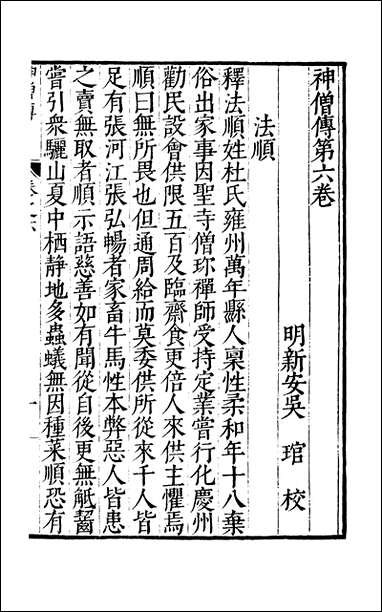 神僧傳第六卷
明新安吳琯校
法順
釋法順姓杜氏雍州萬年縣人稟性柔和年十八棄
俗出家事因聖寺僧珎禪師受持定業嘗行化慶州
勸民設會供限五百及臨齋食更倍人來供主懼焉
順曰無所畏也但通周給而莫委供所從來千人皆
足有張河江張弘暢者家畜牛馬性本弊惡人皆患
之賣無取者順示語慈善如有聞從自後更無觝齧
嘗引衆驪山夏中栖靜地多蟲蟻無因種菜順恐有